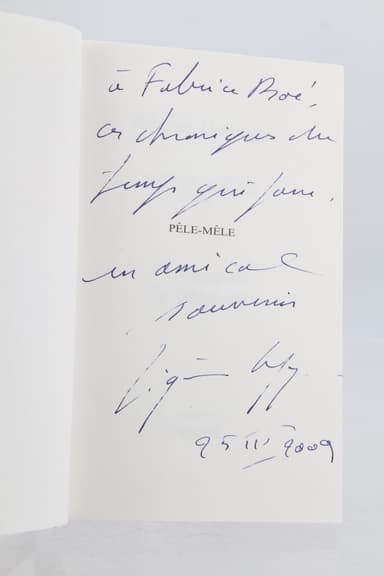 à Fabrice Boé,
ces chroniques du
temps qui passe.
PÊLE-MÊLE
en amical
souvenir
25 III 2009